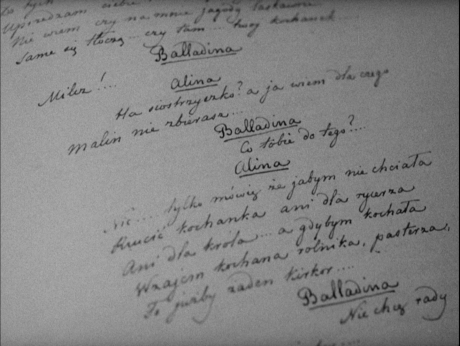 Uprzedzam ciebie
Nie wiem czy na mnie jagody łaskawe
Same się tłoczą... czy tam... twój kochanek...
Balladina
Milcz!...
Alina
Ha siostrzyczko? a ja wiem dla czego
Malin nie zbierasz...
Balladina
Co tobie do tego?...
Alina
Nic... tylko mówię że jabym nie chciała
Rzucić kochanka ani dla rycerza
Ani dla króla... a gdybym kochała
Wzajem kochana rolnika, pasterza,
To jużby żaden Kirkor....
Balladina
Nie chcę rady